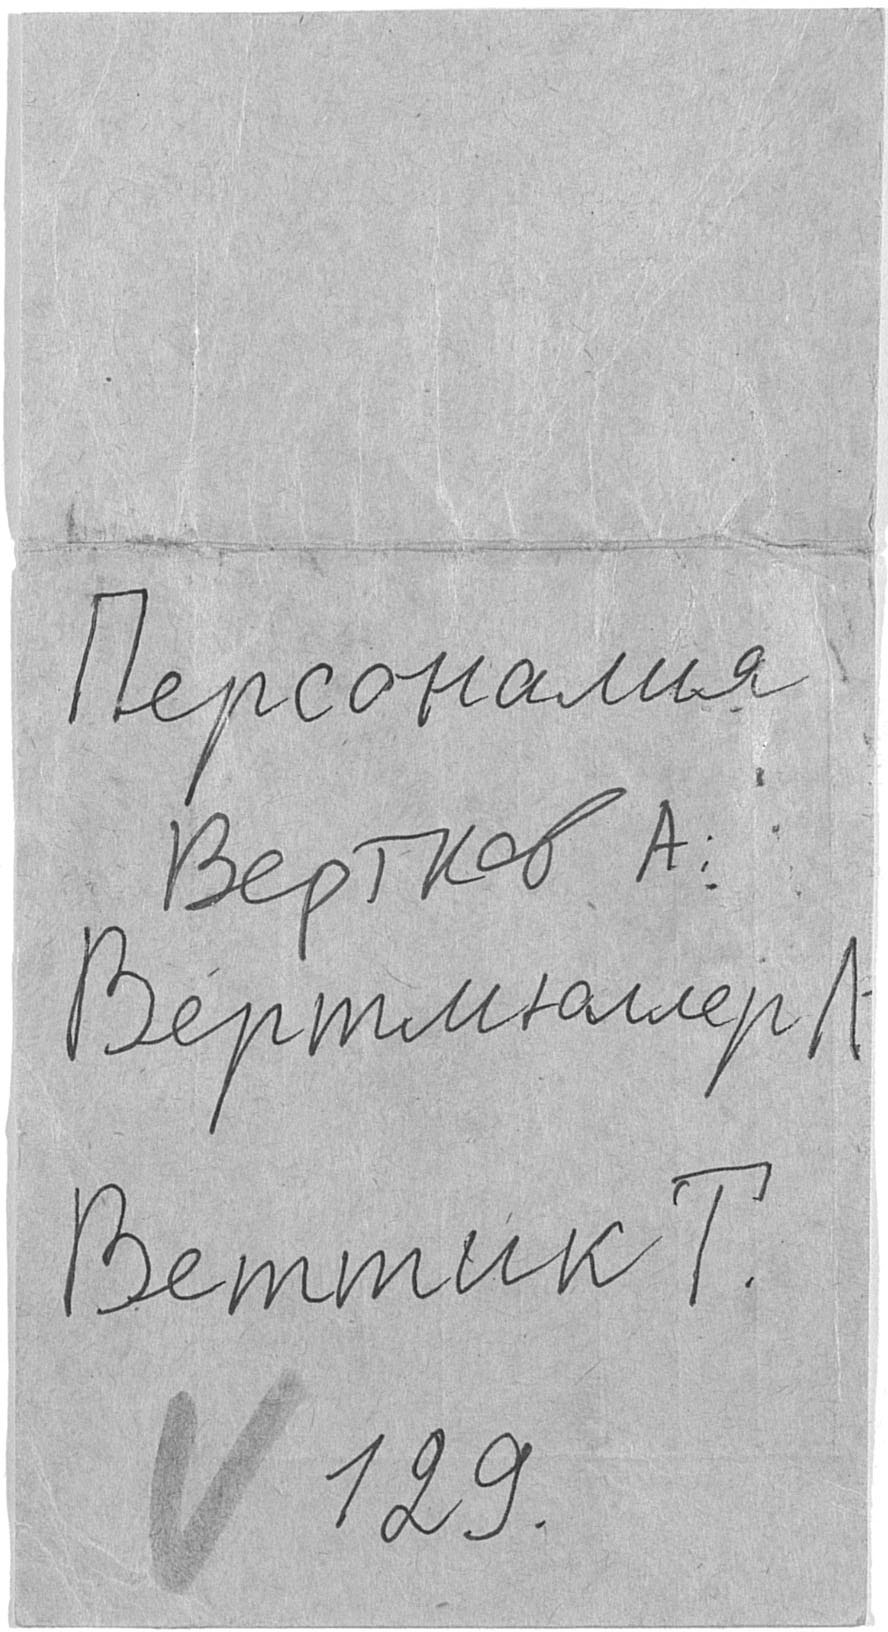 Персоналия
Вертков А.
Вертмюллер Л
Веттик Т.
V 129.